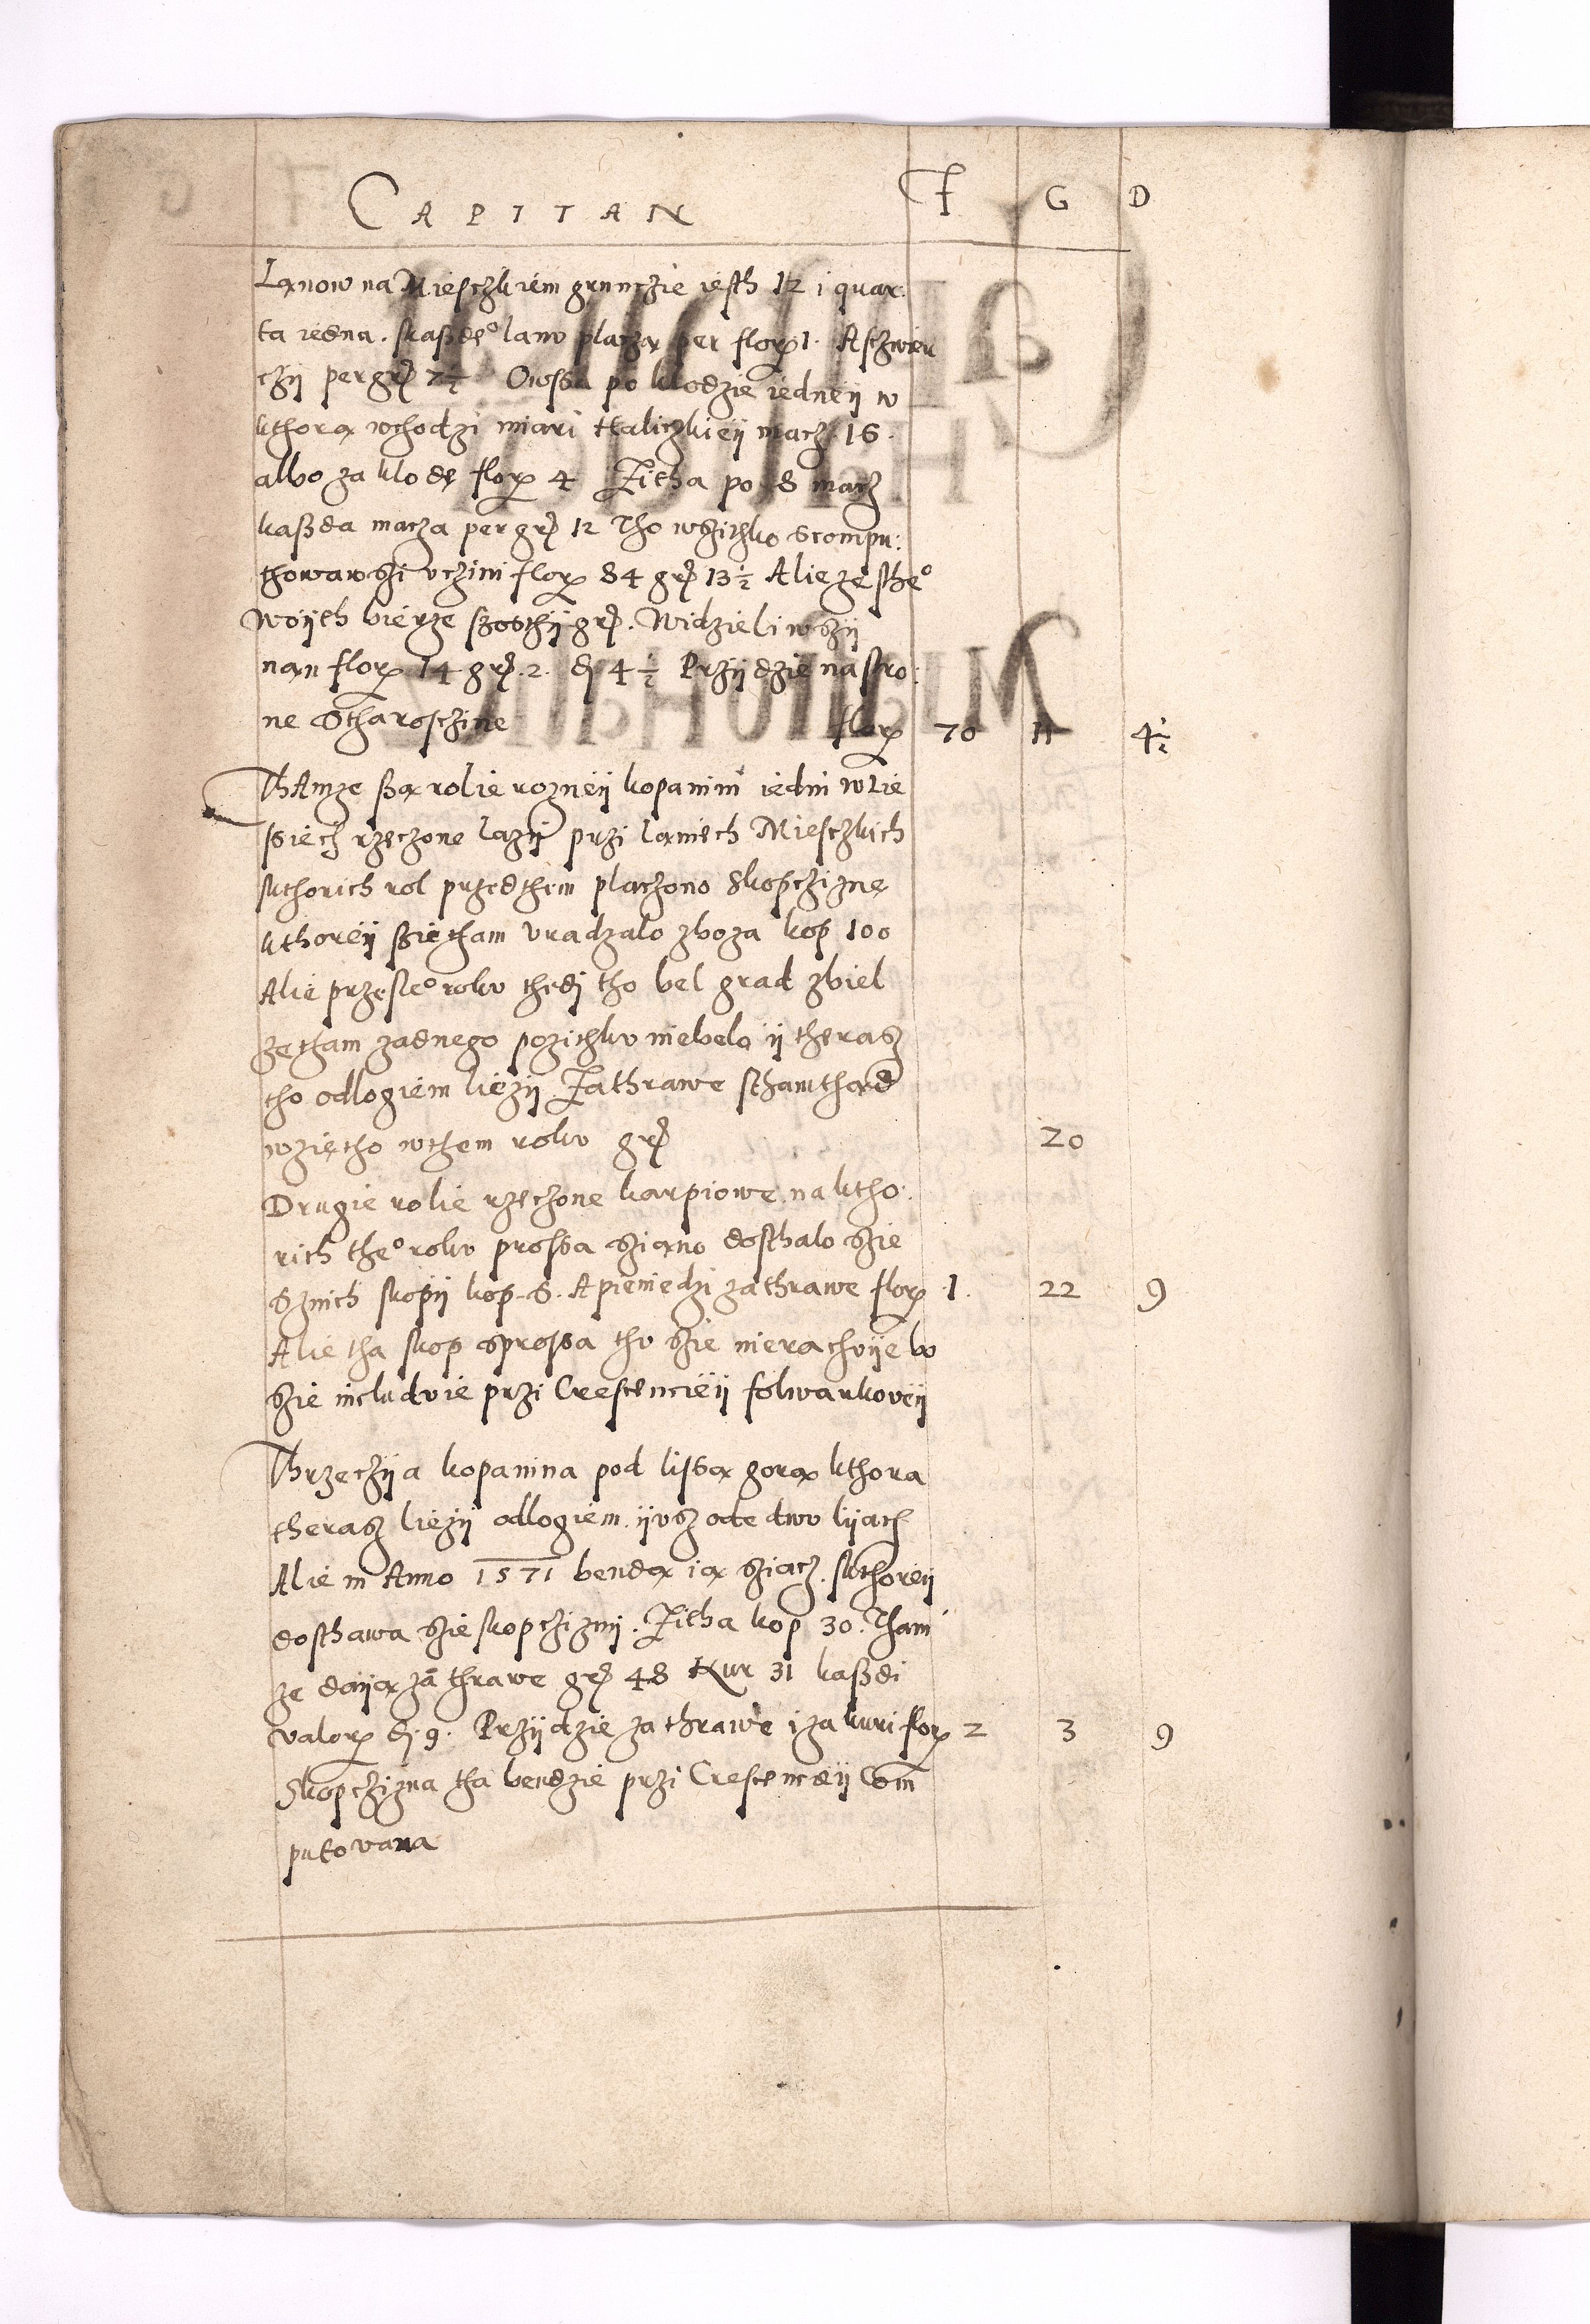 CAPITAN F G D
Lanow na Miesczkiem grunczie iesth 12 i quar:
ta iedna. skaßdeº lanu placzą per flor 1. A sczwier
czÿ per gr 7½ Owssa po klodzie iedneÿ w
kthorą wchodzi miari Haliczkieÿ macz 16.
albo za klodę flor 4 Zitha po 8 macz
kaßda macza per gr 12 Tho wßitzko scompu:
thowawßi uczini flor 84 gr 13½ Alie ze stheº
Woÿth bierze szosthÿ gr. Widzieliwßÿ
nan flor 14 gr. 2. d 4½ Przÿdzie na stro:
ne Staroschine flor 70 11 4½
Thamze ßą rolie rozneÿ kopanini iedni w lie
ßiech rzeczone lazÿ przi laniech Miesczkich
skthorich rol przedthem placzono skopcziznę
kthoreÿ ßie tham vradzalo zboza kop 100
Alie przesleº roku thedi tho bel grad zbiel
ze tham zadnego pozitku niebelo ÿ therasz
tho odlogiem liezÿ Za thrawe stham thąd
wziętho w them roku gr 20
Drugie rolie rzeczone karpiowe na ktho:
rich theº roku prossa ßiano dosthalo ßie
S znich skopÿ kop. 6. A pieniedzi za thrawe flor 1. 22 9
Alie tha skop sprossa thu ßie nierachuÿe bo
ßie includuie przi Crescencieÿ folwarkoveÿ
Thrzeczÿa kopanina pod lissą gorą kthora
therasz liezÿ odlogiem ÿusz ode dwu lÿach
Alie in Anno 1571 bendą ią ßiacz. skthoreÿ
dosthawa ßie skopczizni. Zitha kop 30. Tham
ze daÿą za thrawe gr 48 Kur 31 kaßdi
valor d. 9. Przÿdzie za thrawe i za kuri flor 2 3 9
Skopczizna tha bendzie przi Crescencieÿ Com
putovana